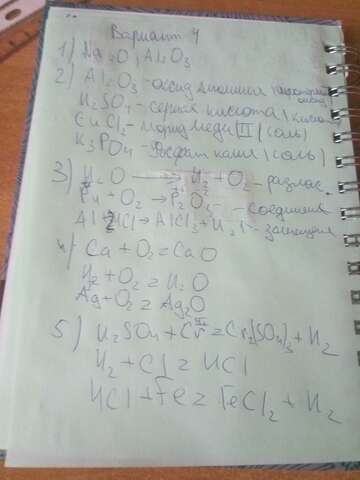 Вариант 4
1) Na₂O, Al₂O₃
2) Al₂O₃ - оксид алюминия (амфотерный оксид)
H₂SO₄ - серная кислота (кислота)
CuCl₂ - хлорид меди II (соль)
K₃PO₄ - фосфат калия (соль)
3) H₂O → H₂ + O₂ - разлож.
P₄ + O₂ → P₂O₅ - соединения
Al + HCl → AlCl₃ + H₂↑ - замещения
4) Ca + O₂ = CaO
H₂ + O₂ = H₂O
Ag + O₂ = Ag₂O
5) H₂SO₄ + Cr = Cr₂(SO₄)₃ + H₂
H₂ + Cl = HCl
HCl + Fe = FeCl₂ + H₂